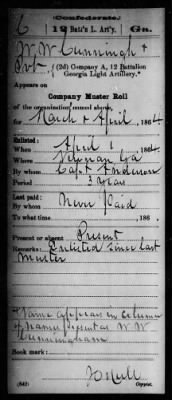 (Confederate.)
C 12 Batt'n L. Art'y. Ga.
W. W. Cunningh &
Pvt. (2d) Company A, 12 Battalion
Georgia Light Artillery.*
Appears on
Company Muster Roll
of the organization named above,
for March & April, 1864.
Enlisted:
When April 1, 1864.
Where Ga
By whom Capt Anderson
Period 3 years
Last paid:
By whom Never Paid
To what time , 186 .
Present or absent Present
Remarks: Enlisted since last
muster
Name appears in column
of names present as W. W.
Cunningham
Book mark:
(642) Copyist.